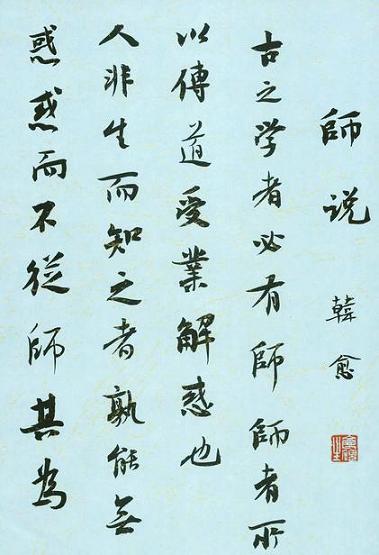 師说 韓愈
古之学者必有師師者所
以傳道受業解惑也
人非生而知之者孰能無
惑惑而不從師其為